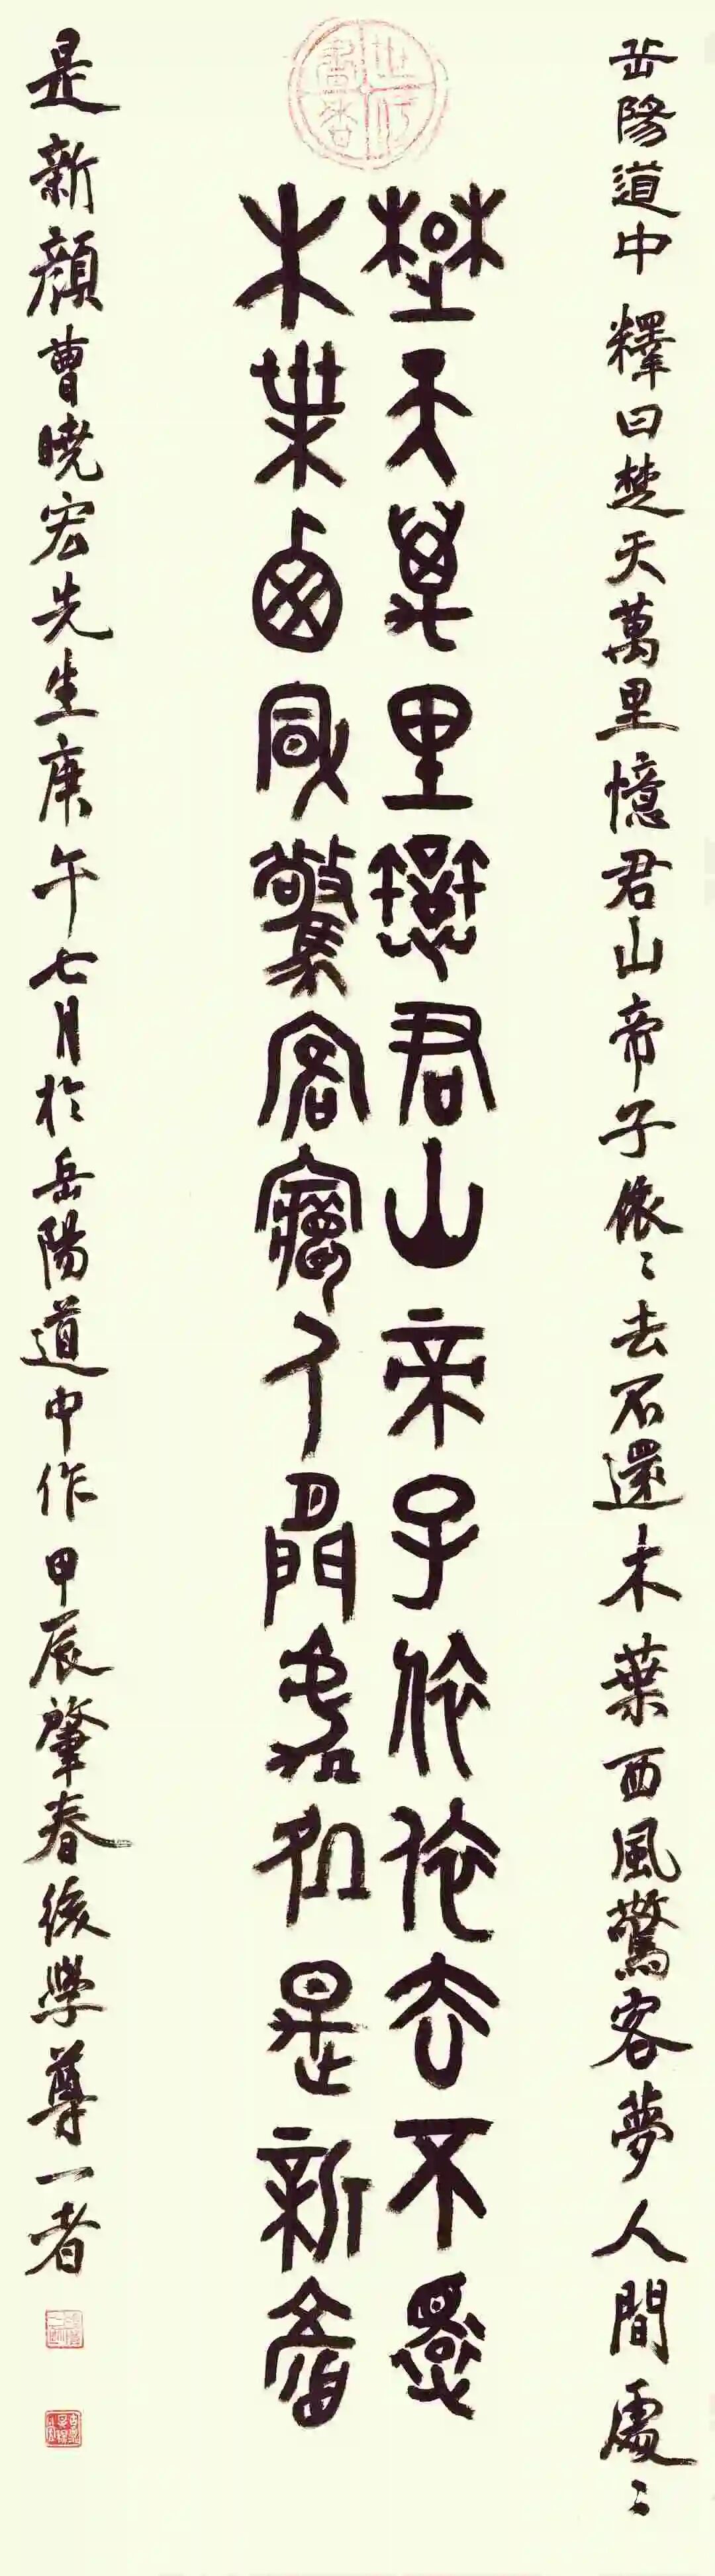 世代書香
岳陽道中 釋曰楚天萬里憶君山帝子依〻去不還木葉西風驚客夢人間處〻
楚天萬里憶君山帝子依依去不還
木葉西風驚客夢人間處處是新顏
是新顏曹曉宏先生庚午七月於岳陽道中作甲辰肇春後學尊一者